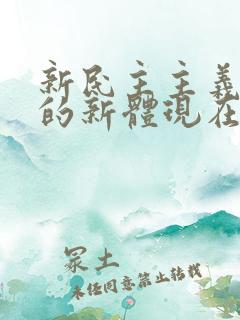 新民主主義
的新體現在
冢土
未经同意禁止转载